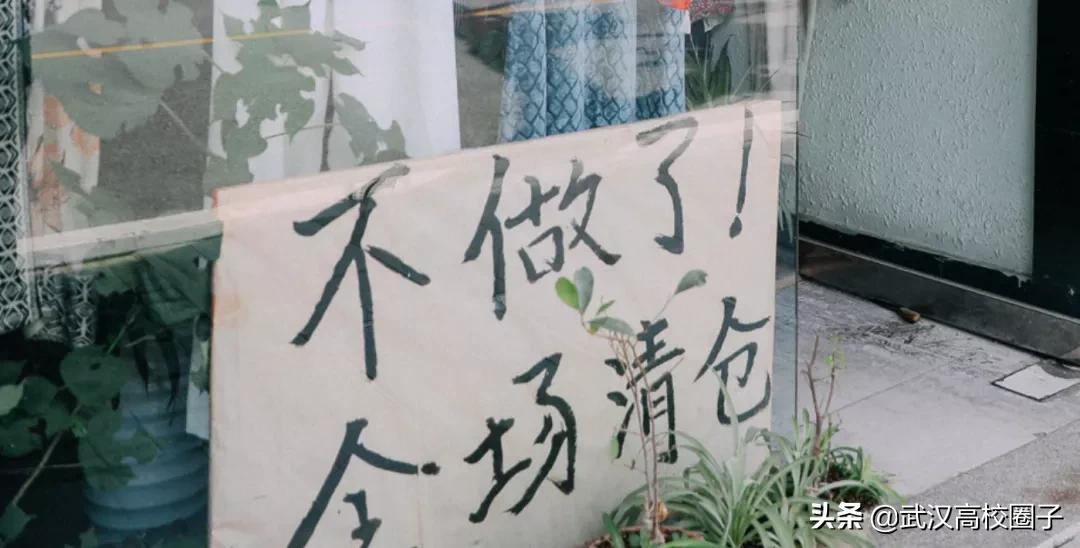 不做了!
全场清仓
头条 @武汉高校圈子